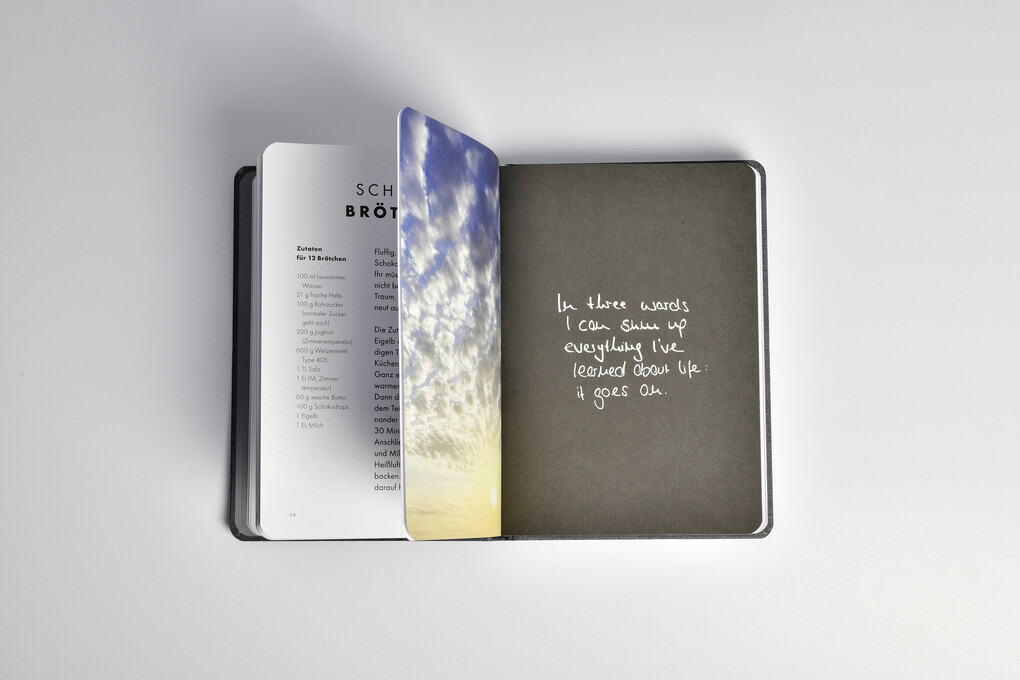 SCH
BRÖT
Zutaten
für 12 Brötchen
100 ml lauwarmes
Wasser
21 g frische Hefe
100 g Rohrzucker
(normaler Zucker
geht auch)
200 g Joghurt
(Zimmertemperatur)
600 g Weizenmehl
Type 405
1 TL Salz
1 Ei (M, Zimmer-
temperatur)
60 g weiche Butter
100 g Schokodrops
1 Eigelb
1 EL Milch
Fluffig,
Schoko
Ihr müs
nicht be
Traum.
neut au
Die Zut
Eigelb u
digen T
Küchen
Ganz e
warmen
Dann d
dem Tei
nander
30 Min
Anschlie
und Mil
Heißluft
backen.
darauf h
20
In three words
I can sum up
everything I've
learned about life:
it goes on.